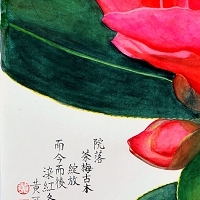 院落
茶梅古木
綻放
而今而後
染紅
黃